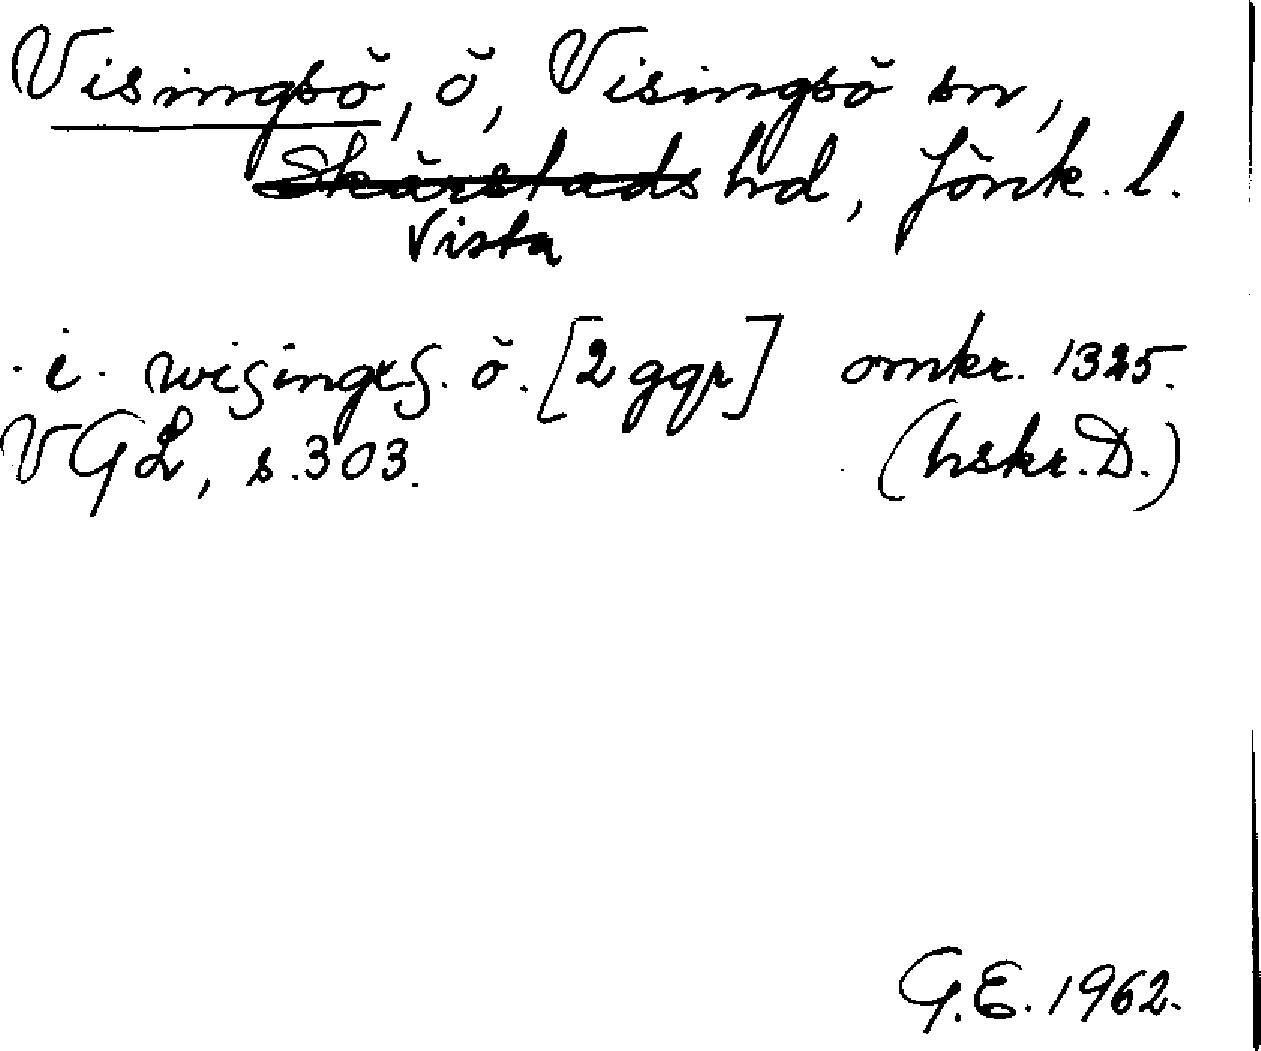 Visingsö, ö, Visingsö sn,
Skärstads hd, Jönk. l.
Vista
. i . wiſingeſ. ö. [2 ggr] omkr. 1325.
VGL, s. 303. (hskr. D.)
G.E. 1962.